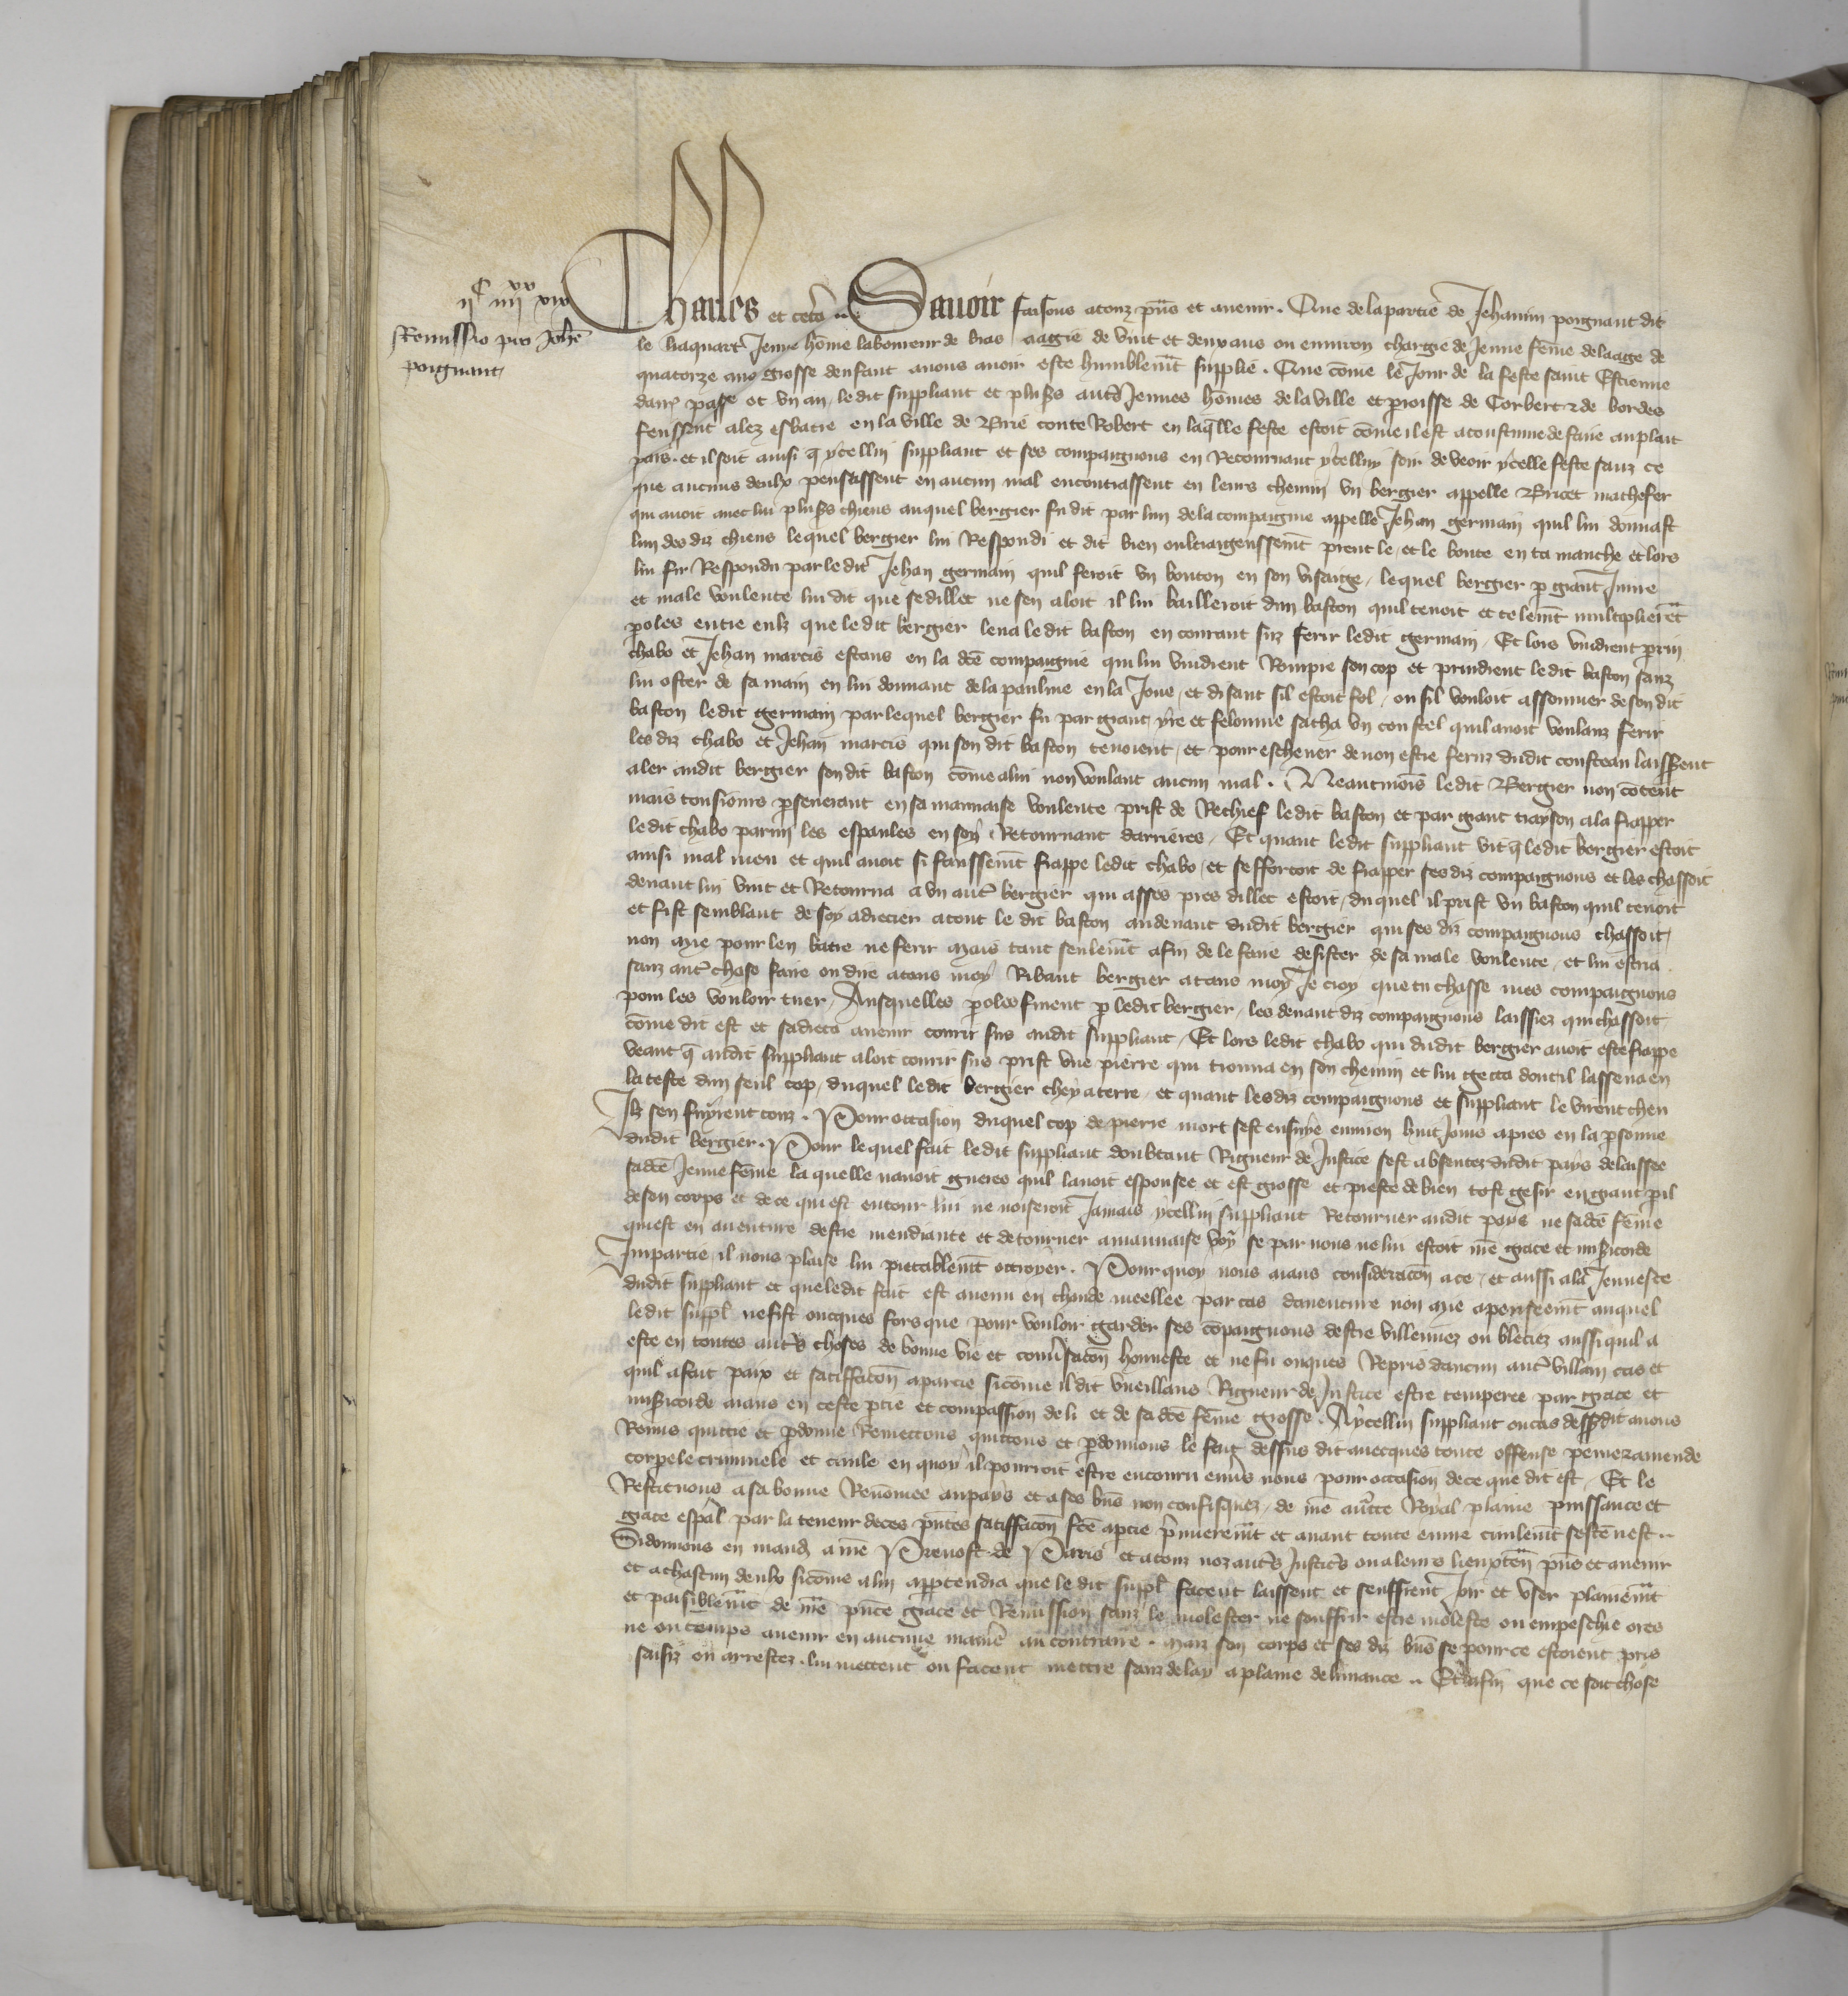 iiC iiiixx xiv
Remissio pro Johē
poignant
Charles et cetẽ .. Savoir faisons a touz pñs et avenir. Que de la partie de Jehannin poignant dit
le liaquart Jeune hõme laboureur de bras aagié de vint et deux ans ou environ chargié de Jeune fẽme de laage de
quatorze ans grosse denfant avons avoir esté humblemẽt supplié. Que cõme le Jour de la feste saint Estienne
darr̃ passé et un an, ledit suppliant et plus̃s autr̃s Jeunes hõmes de la ville et p̃roisse de Corbert & de bordes
feussent alez esbatre en la ville de Brie conte Robert en laq̃lle feste estoit cõme il est acoustumé de faire au plait
pais. et il soit ainsi q̃ ycellui suppliant et ses compaignons en Retournant ycellui soir de veoir ycelle feste sanz ce
que aucuns deulx pensassent en aucun mal encontrassent en leurs chemin un bergier appellé Bricet machefer
qui avoit avec lui plus̃s chiens auquel bergier fu dit par lun de la compaignie appellé Jehan germain quil lui donnast
lun des diz chiens lequel bergier lui Respondi et dit bien oultrageusemẽt prent le, et le boute en ta manche et lors
lui fu Respondu par ledit Jehan germain quil feroit un bouton en son visaige, lequel bergier p̃ grant Injure
et male voulenté lui dit que se dillec ne sen aloit il lui bailleroit dun baston quil tenoit et telemẽt multiplierẽt
p̃oles entre eulz que ledit bergier leva ledit baston en courant suz ferir ledit germain, Et lors vindrent perrin
chabo et Jehan marcis estans en la dc̃e compaignie qui lui vindrent Rompre son cop et prindrent ledit baston sanz
lui oster de sa main en lui donnant de la paulme en la Joue, et disant sil estoit fol, ou sil vouloit assommer de son dit
baston ledit germain par lequel bergier fu par grant yre et felonnie sacha un coustel quil avoit voulanz ferir
les diz chabo et Jehan marcis qui son dit baston tenoient, et pour eschever de non estre feruz dudit coustean laissẽnt
aler audit bergier sondit baston cõme a lui non voulant aucun mal. Neantmoins ledit Bergier non cõtent
mais tousiours p̃severant en sa mauvaise voulenté prist de Rechief ledit baston et par grant trayson ala frapper
ledit chabo parmi les espaules en soy Retournant darrieres, Et quant ledit suppliant vit q̃ ledit bergier estoit
ainsi mal meu et quil avoit si faussemẽt frappé ledit chabo, et sefforçoit de frapper ses diz compaignons et les chassoit
devant lui vint et Retourna a un autr̃ bergier qui asses pres dillec estoit, duquel il prist un baston quil tenoit
et fist semblant de soy adrecier atout le dit baston audevant dudit bergier qui ses diz compaignons chassoit,
non mye pour len batre ne ferir mais tant seulemẽt afin de le faire desister de sa male voulenté, et lui escria
sanz autr̃ chose faire ou dire atens moy Ribaut bergier atens moy Je croy que tu chasse mes compaignons
pour les vouloir tuer, Ausquelles p̃oles finent p̃ ledit bergier, les devant diz compaignons laissiez qui chassoit
cõme dit est et sadreca a venir courir sus audit suppliant, Et lors ledit chabo qui dudit bergier avoit esté frappé
veant q̃ audit suppliant aloit courir sus prist une pierre qui trouva en son chemin et lui getta dont il lassena en
la teste dun seul cop, duquel ledit bergier chey a terre, et quant lesdiz compaignons et suppliant le virent cheu
Ilz sen fuyrent touz. Pour occasion duquel cop de pierre mort sest ensuye environ huit Jours apres en la p̃sonne
dudit bergier. Pour lequel fait ledit suppliant doubtant Rigueur de Justice sest absentez dudit pays delaissée
sadc̃e Jeune fẽme la quelle navoit gueres quil lavoit espousee et est grosse et preste de bien tost gesir en grant p̃il
de son corps et de ce qui est entour lui ne noiseroit Jamais ycellui suppliant Retourner audit pays ne sadc̃e fẽme
qui est en aventure destre mendiante et de tourner a mauvaise voy se par nous ne lui estoit nr̃e grace et mis̃icorde
Impartie, il nous plaise lui piteablemẽt ottroyer. Pour quoy nous aians consideracõn a ce, et aussi a la Jeunesce
dudit suppliant et que ledit fait est avenu en chaude meellee par cas daventure non mye apenseemẽt auquel
ledit suppl̃ ne fist oncques fors que pour vouloir garder ses cõpaignons destre villennez ou bleciez aussi quil a
esté en toutes autr̃s choses de bonne vie et conṽsacõn honneste et ne fu onques Repris daucun autr̃ villain cas et
quil a fait paix et satiffacõn a partie sicõme il dit vueillans Rigueur de Justice estre temperee par grace et
mis̃icorde aians en ceste p̃tie et compassion de li et de sa dc̃e fẽme grosse. A ycellui suppliant ou cas dess̃dit avons
Remis quittié et p̃donné Remettons quittons et p̃donnons le fait dessus dit avecques toute offense peine & amende
corpele criminele et civile en quoy il pourroit estre encouru enṽs nous pour occasion de ce que dit est, Et le
Restituons a sa bonne Renõmee au pays et a ses bñs non confisquez, de nr̃e auc̃te Royal plaine puissance et
grace esp̃al par la teneur de ces p̃ntes satiffacõn fc̃e a p̃tie p̃mieremẽt et avant toute euvre civilemẽt se fc̃e nest ..
Si donnons en mand̃ a nr̃e Prevost de Paris et a touz noz autr̃s Justic̃s ou a leurs lieuxten̄ p̃ns et avenir
et a chascun deulx sicõme a lui app̃tendra que le dit suppl̃ facent laissent et seuffrent Joir et user plainemẽt
et paisiblemẽt de nr̃e p̃nte grace et Remission sanz le molester ne souffrir estre molesté ou empesché ores
ne ou temps avenir en aucune manĩe au contraire. mais son corps et ses diz bñs se pour ce estoient pris
saisiz ou arrestez. lui mettent ou facent mettre sanz delay a plaine delivrance .. Et afin que ce soit chose